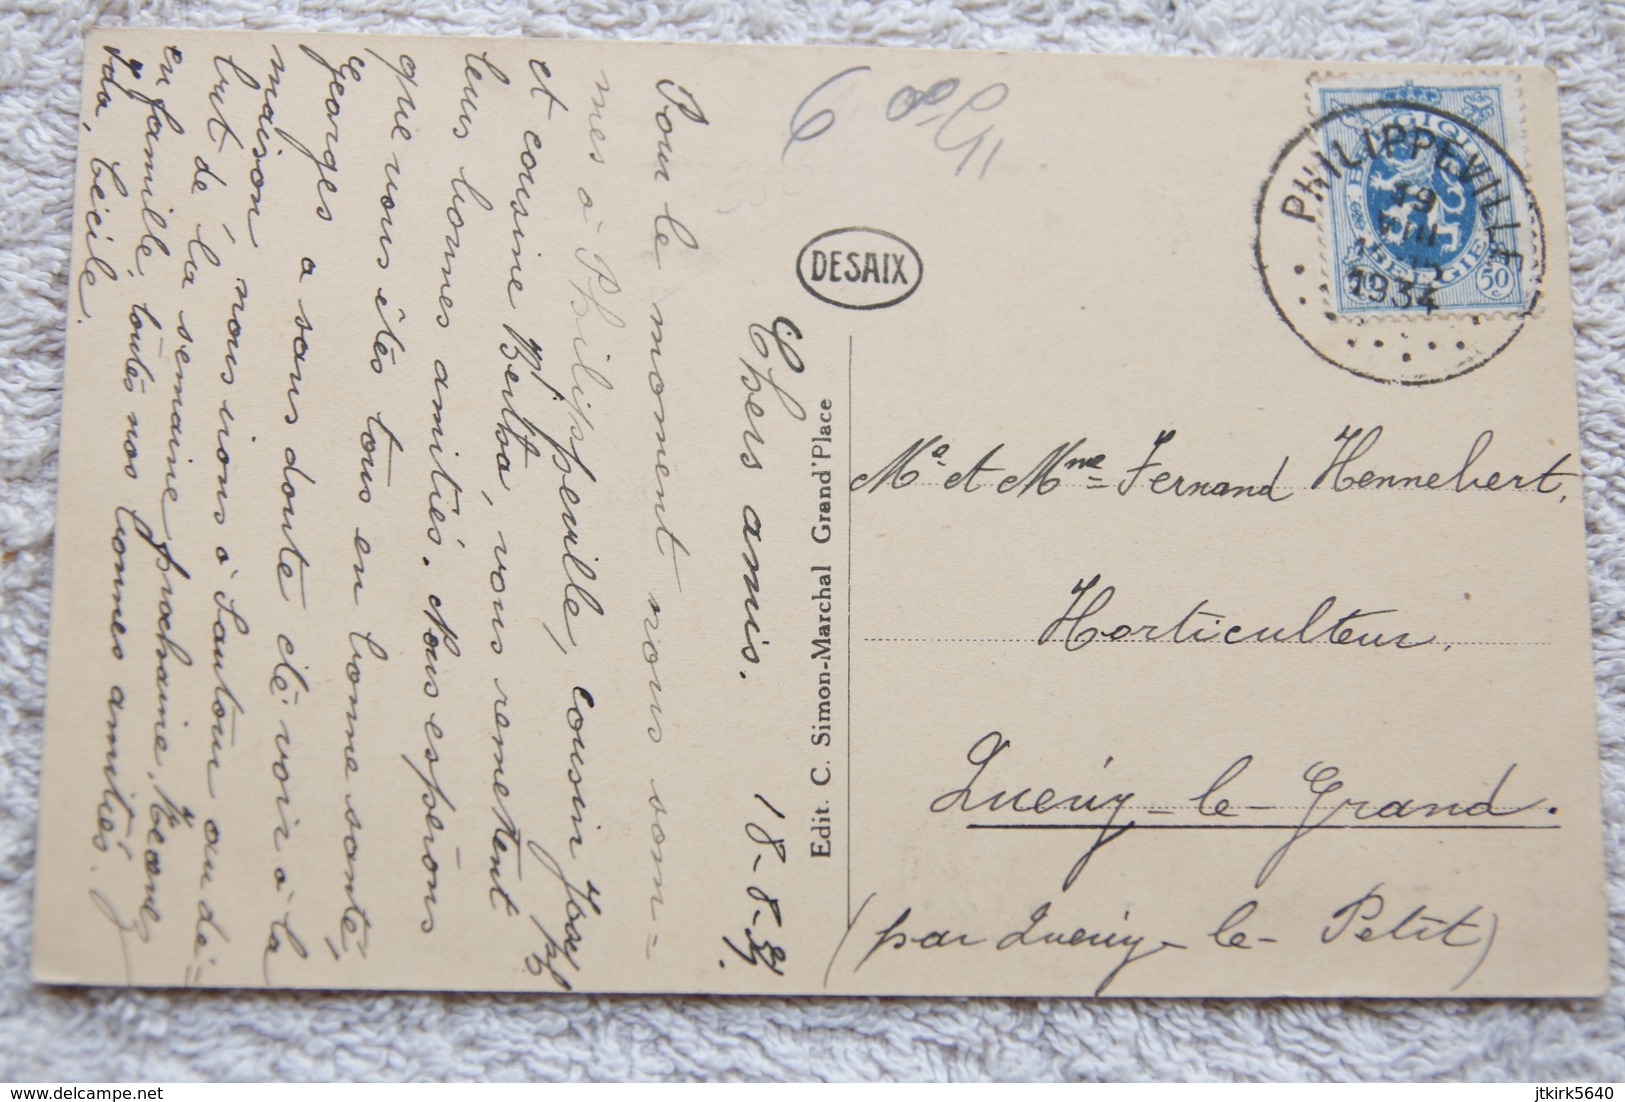 Chers amis. 18-8-34.
Pour le moment nous som=
mes à Philippeville, cousin
et cousine Bertha, vous remettent
leurs bonnes amitiés. Nous espérons
que vous êtes tous en bonne santé,
Georges a sans doute dé voir à la
maison, nous irons à Santour au dé=
but de la semaine prochaine.
en famille, toutes nos bonnes amitiés.
Ida, Cécile.
DESAIX
Edit. C. Simon-Marchal Grand'Place
PHILIPPEVILLE
19
VIII
1934
BELGIQUE
BELGIE
50c
Mr et Mme Fernand Hennebert,
Horticulteur,
Quévy-le-Grand.
(par Quévy-le-Petit)
delcampe.net
jtkirk5640